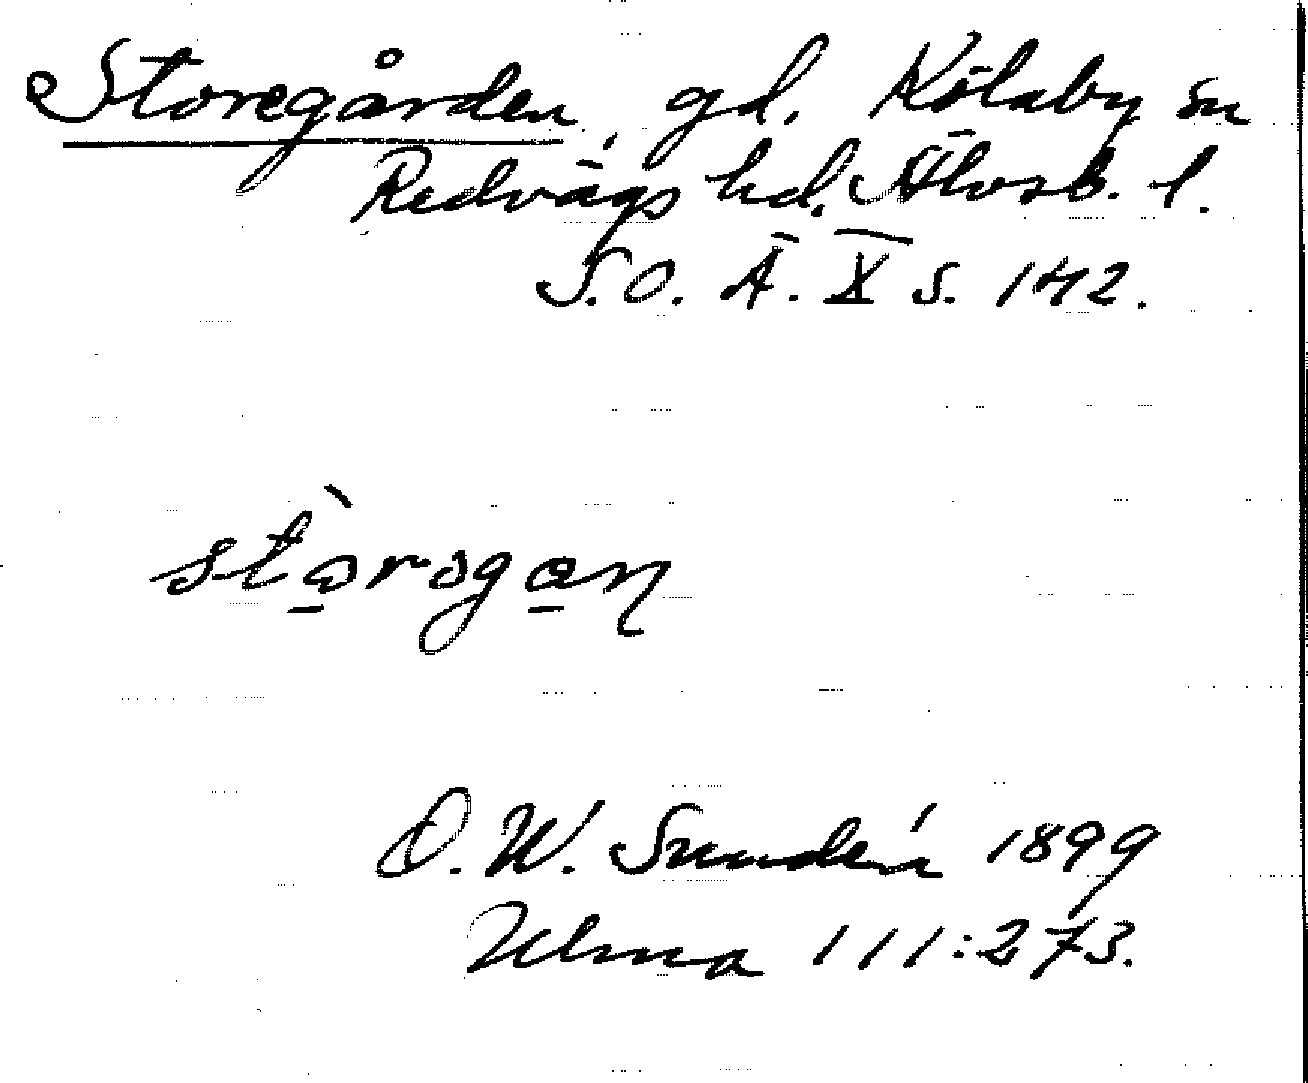 Storegården, gd. Kölaby sn
Redvägs hd. Älvsb. l.
S.O. Ä. X s. 142.
stòrəgan
O. W. Sundén 1899
Ulma 111:273.